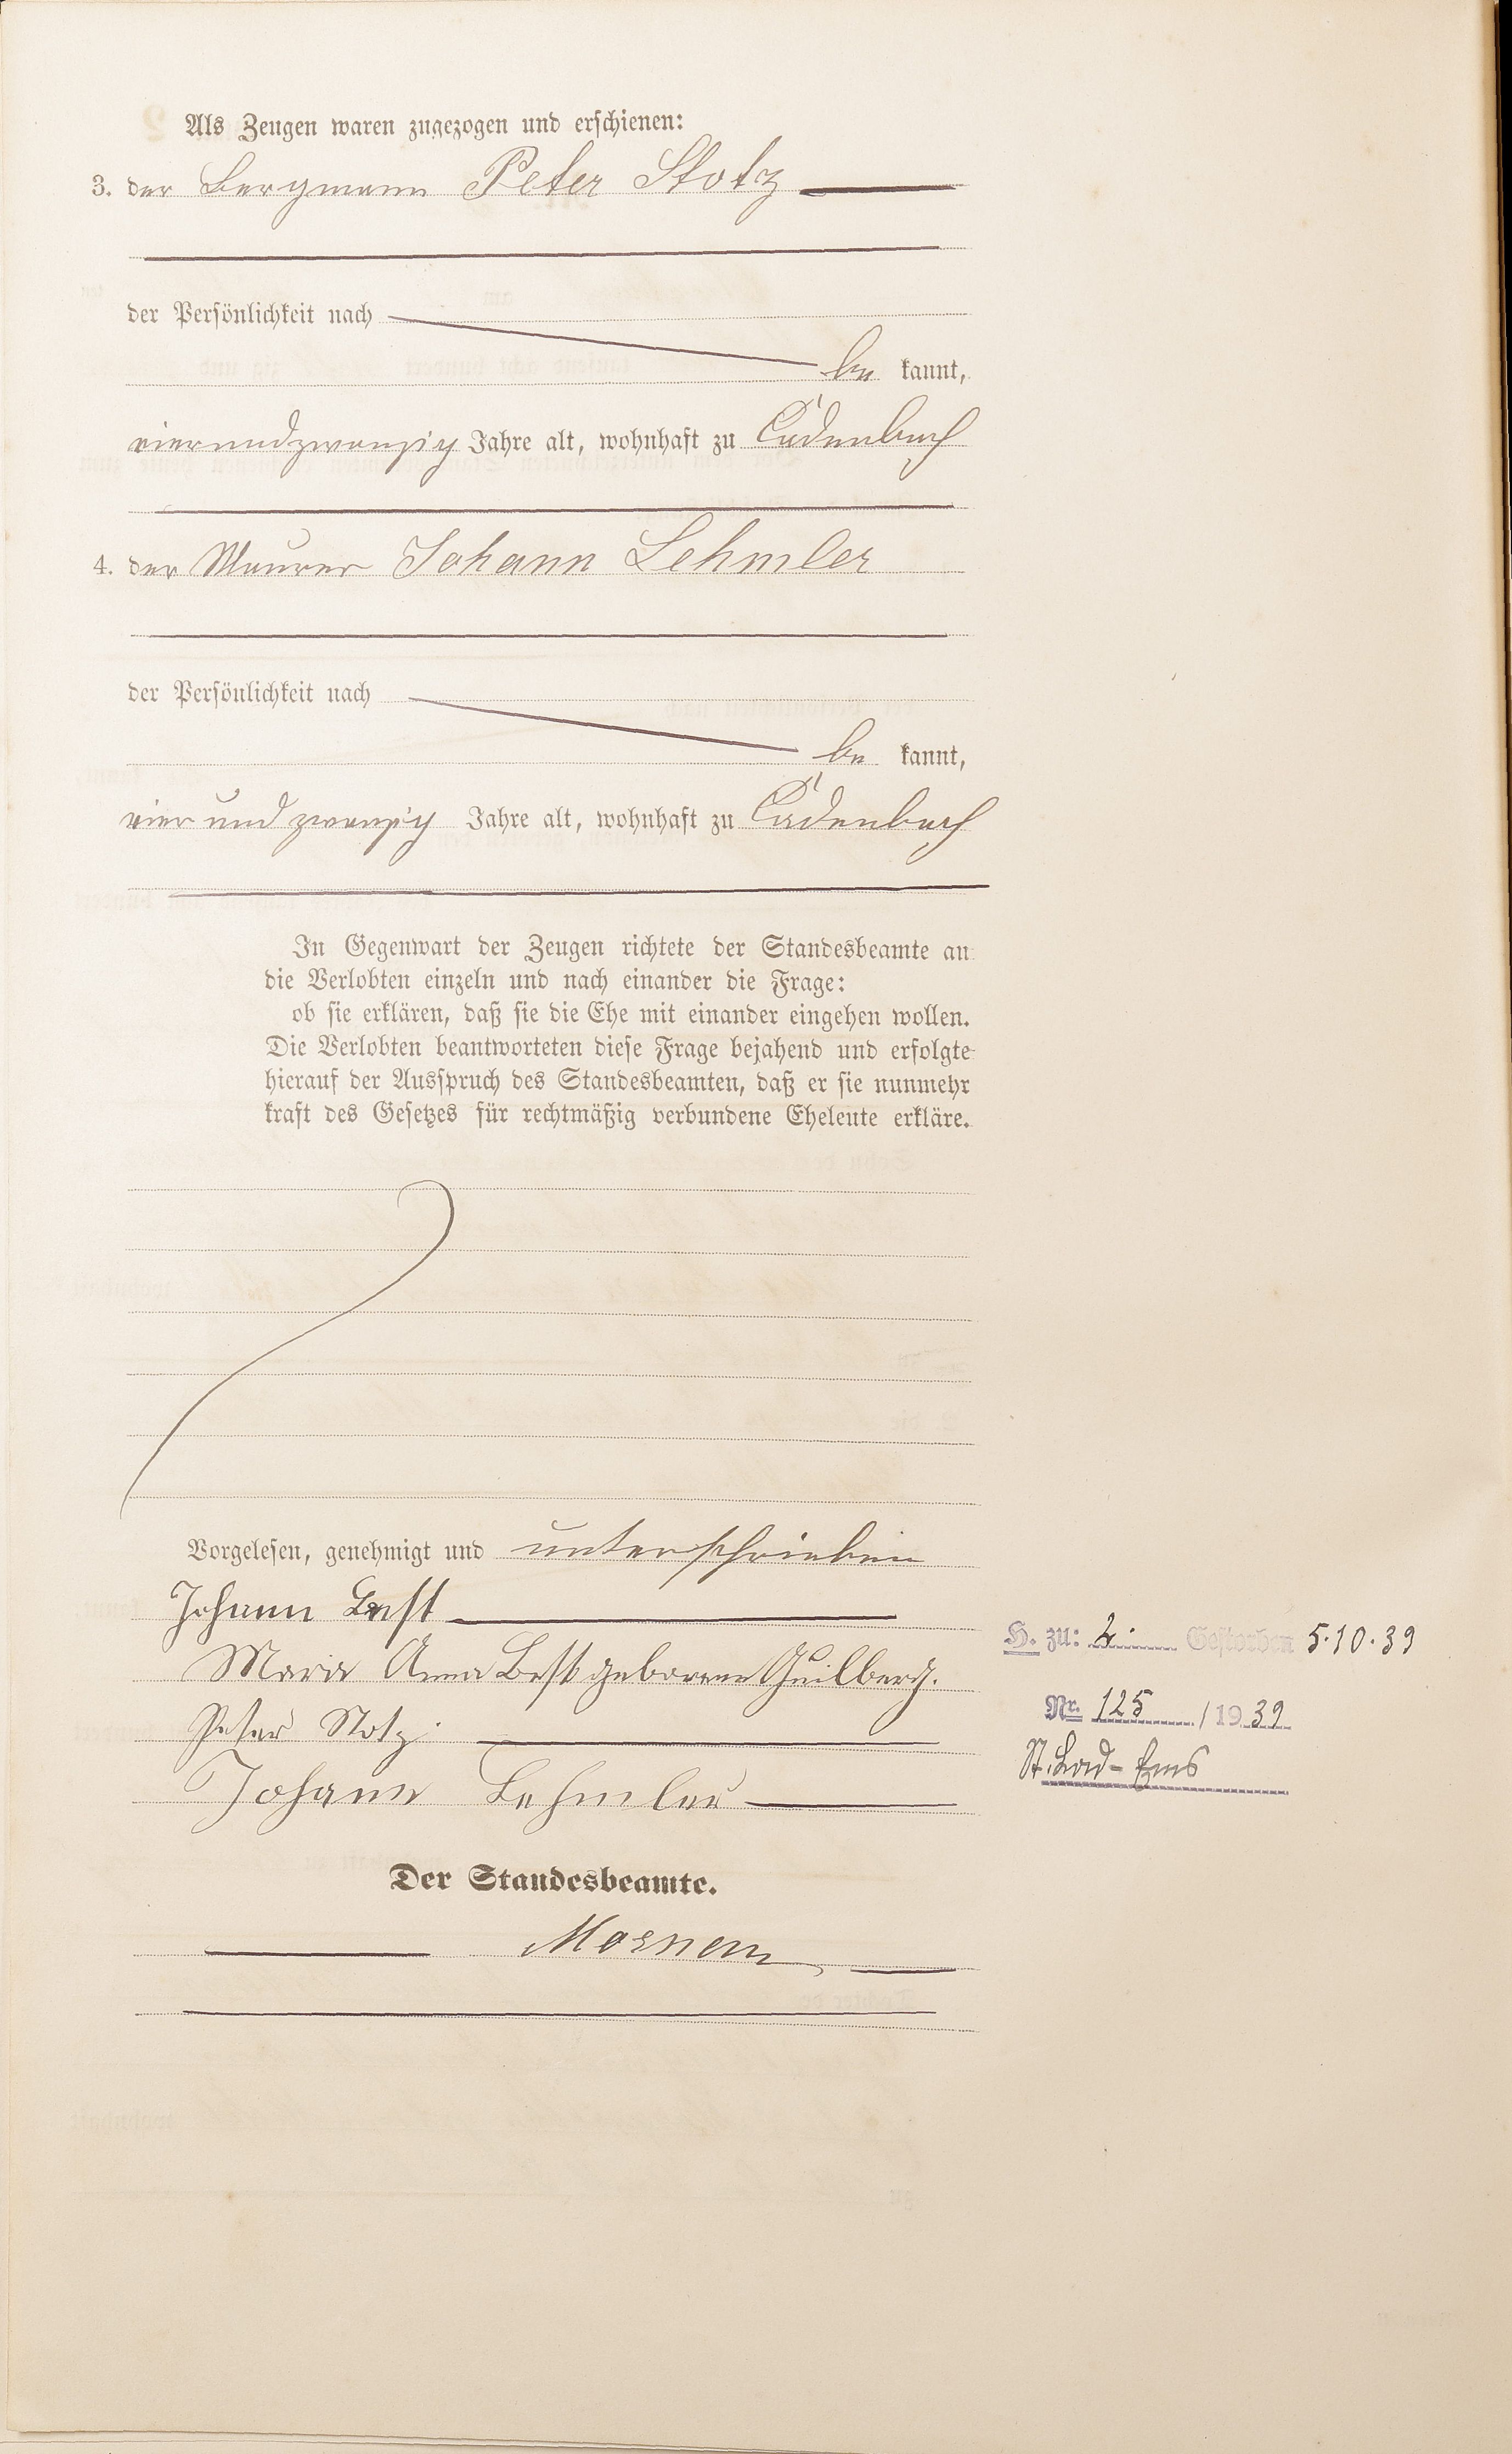 Als Zeugen waren zugezogen und erschienen:
3. der Bergmann Peter Stotz
der Persönlichkeit nach
be kannt,
vierundzwanzig Jahre alt, wohnhaft zu Cadenbach
4. der Maurer Johann Lehmler
der Persönlichkeit nach
be kannt,
vier und zwanzig Jahre alt, wohnhaft zu Cadenbach
In Gegenwart der Zeugen richtete der Standesbeamte an
die Verlobten einzeln und nach einander die Frage:
ob sie erklären, daß sie die Ehe mit einander eingehen wollen.
Die Verlobten beantworteten diese Frage bejahend und erfolgte
hierauf der Ausspruch des Standesbeamten, daß er sie nunmehr
kraft des Gesetzes für rechtmäßig verbundene Eheleute erkläre.
Vorgelesen, genehmigt und unterschrieben
Johann Best
Maria Anna Best geborene
Peter Stotz
Johann Lehmler
H. zu: 2. Gestorben 5.10.39
Nr. 125 / 1939
St. Bad-Ems
Der Standesbeamte.